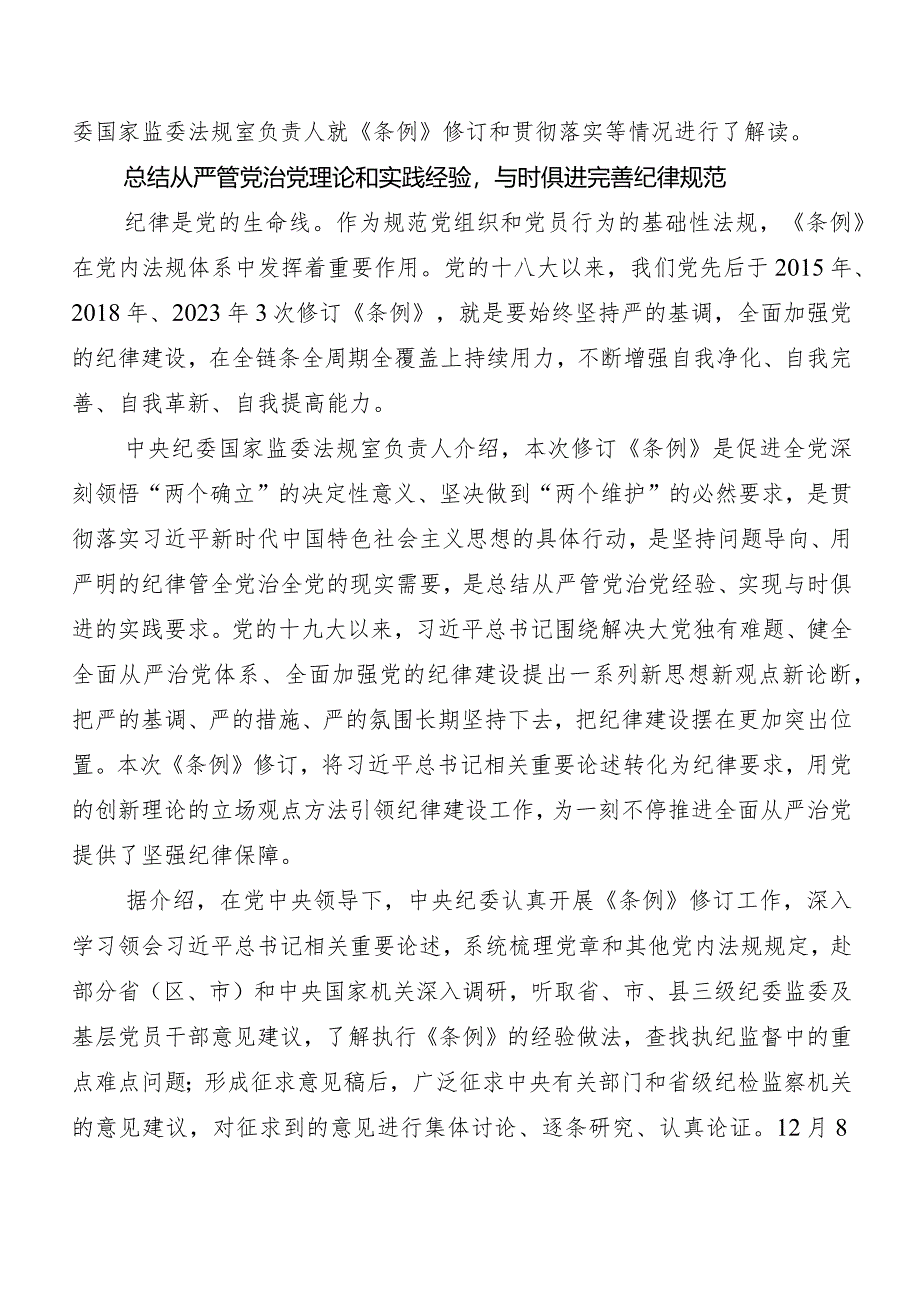 委国家监委法规室负责人就《条例》修订和贯彻落实等情况进行了解读。
总结从严管党治党理论和实践经验，与时俱进完善纪律规范
纪律是党的生命线。作为规范党组织和党员行为的基础性法规，《条例》
在党内法规体系中发挥着重要作用。党的十八大以来，我们党先后于 2015 年、
2018 年、2023 年 3 次修订《条例》，就是要始终坚持严的基调，全面加强党
的纪律建设，在全链条全周期全覆盖上持续用力，不断增强自我净化、自我完
善、自我革新、自我提高能力。
中央纪委国家监委法规室负责人介绍，本次修订《条例》是促进全党深
刻领悟“两个确立”的决定性意义、坚决做到“两个维护”的必然要求，是贯
彻落实习近平新时代中国特色社会主义思想的具体行动，是坚持问题导向、用
严明的纪律管全党治全党的现实需要，是总结从严管党治党经验、实现与时俱
进的实践要求。党的十九大以来，习近平总书记围绕解决大党独有难题、健全
全面从严治党体系、全面加强党的纪律建设提出一系列新思想新观点新论断，
把严的基调、严的措施、严的氛围长期坚持下去，把纪律建设摆在更加突出位
置。本次《条例》修订，将习近平总书记相关重要论述转化为纪律要求，用党
的创新理论的立场观点方法引领纪律建设工作，为一刻不停推进全面从严治党
提供了坚强纪律保障。
据介绍，在党中央领导下，中央纪委认真开展《条例》修订工作，深入
学习领会习近平总书记相关重要论述，系统梳理党章和其他党内法规规定，赴
部分省（区、市）和中央国家机关深入调研，听取省、市、县三级纪委监委及
基层党员干部意见建议，了解执行《条例》的经验做法，查找执纪监督中的重
点难点问题；形成征求意见稿后，广泛征求中央有关部门和省级纪检监察机关
的意见建议，对征求到的意见进行集体讨论、逐条研究、认真论证。12 月 8